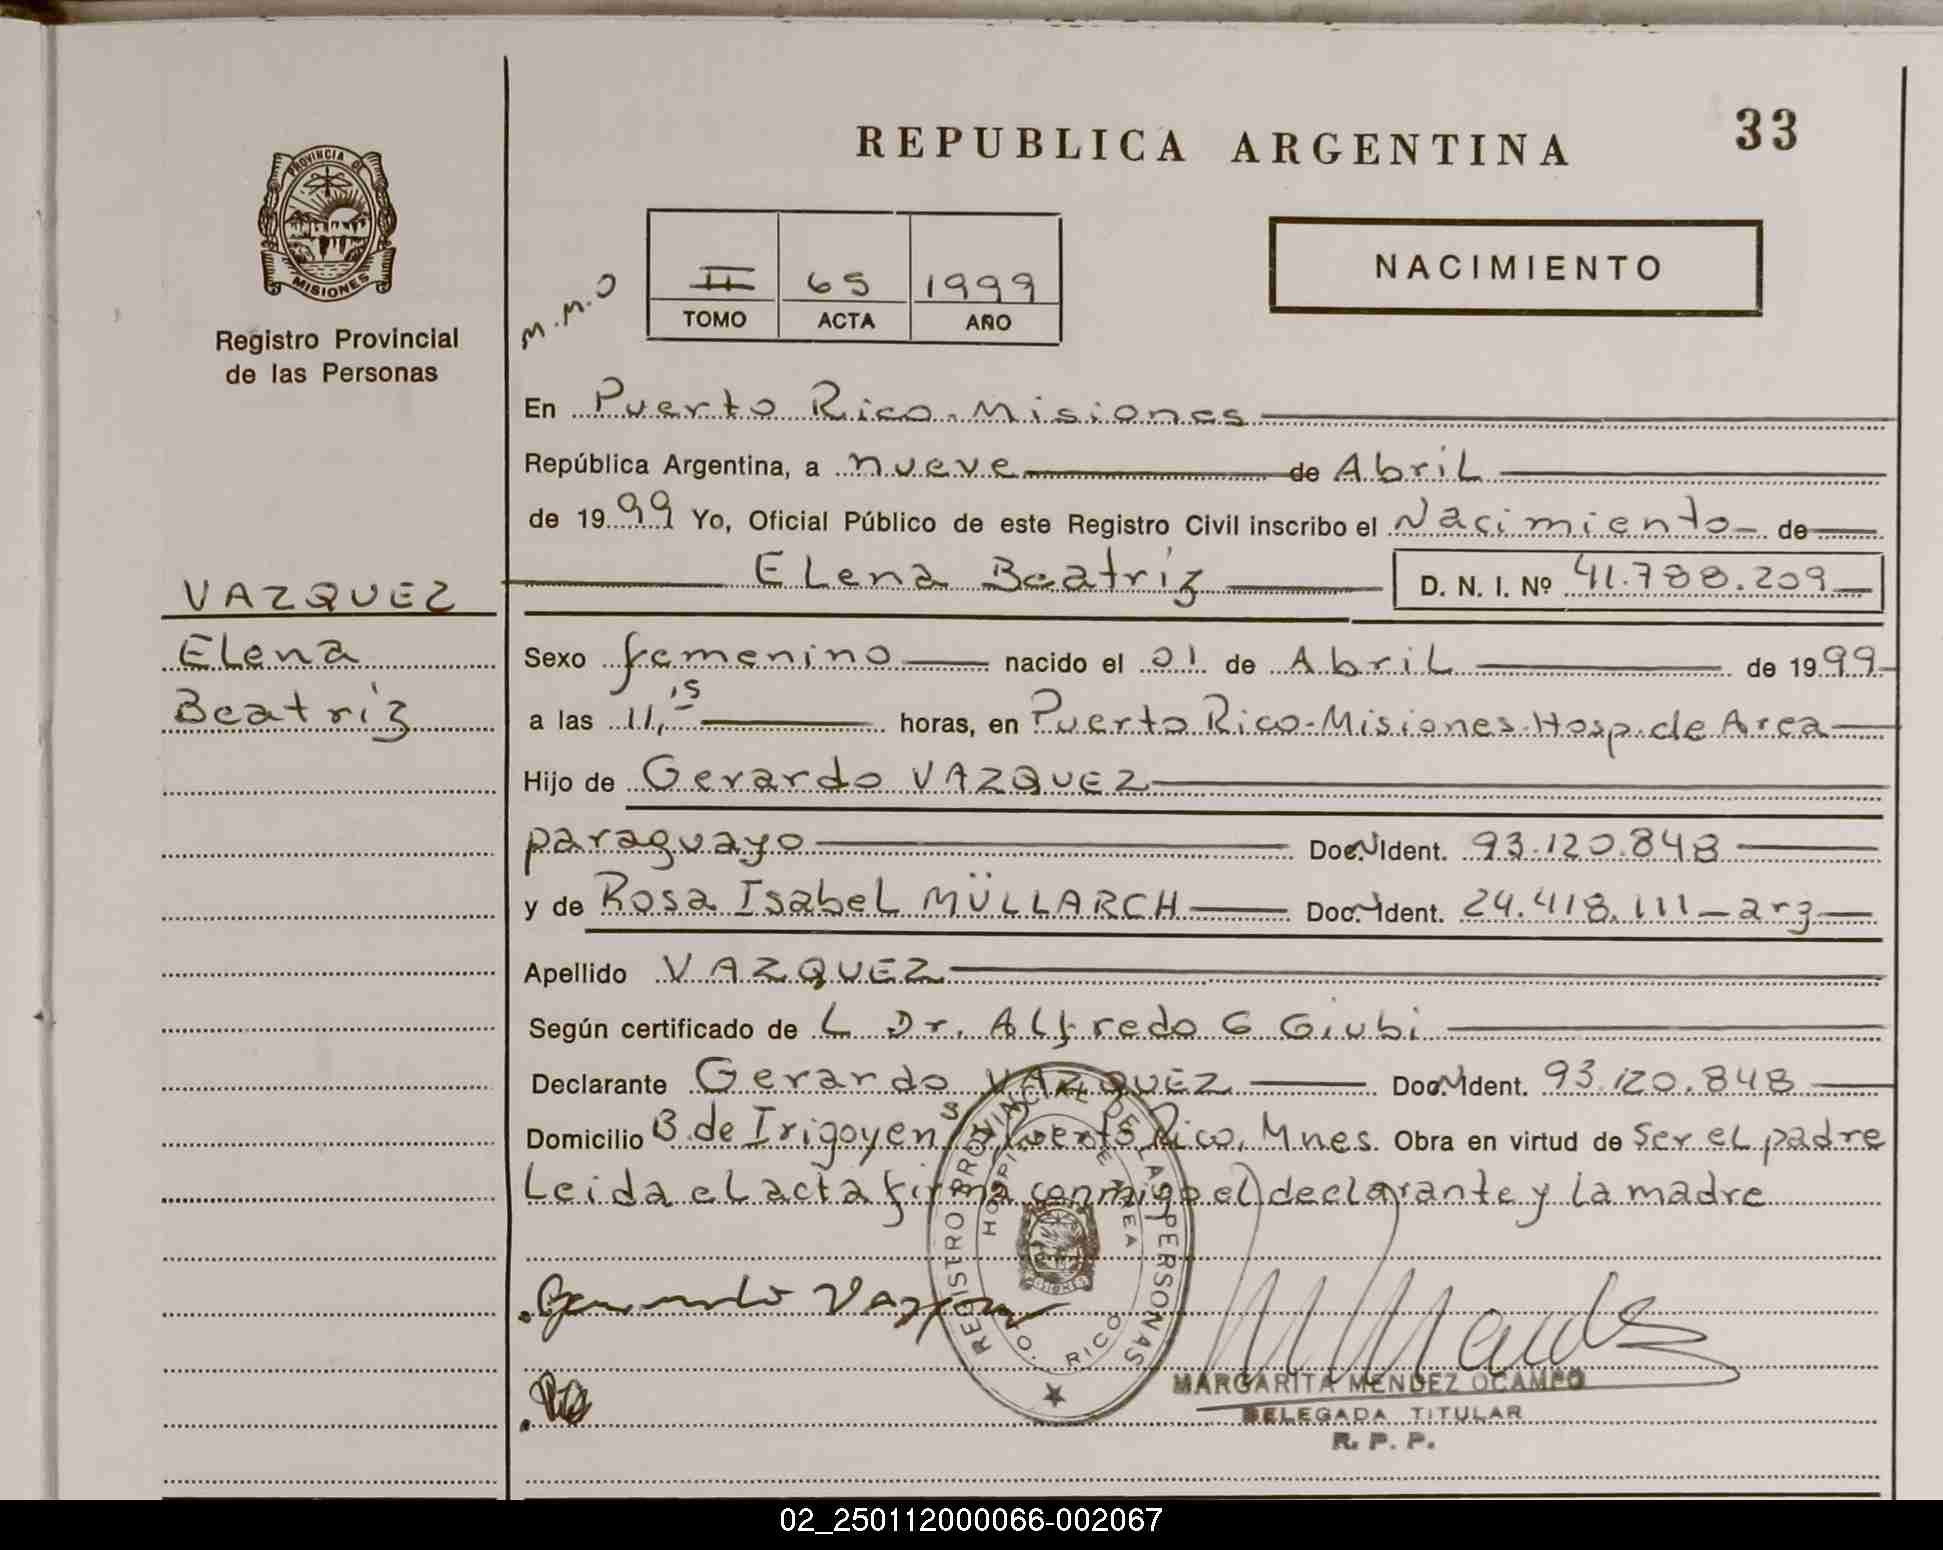 REPUBLICA ARGENTINA
33
PROVINCIA DE
MISIONES
Registro Provincial
de las Personas
M.M.O
II 65 1999
TOMO ACTA AÑO
NACIMIENTO
En Puerto Rico - Misiones
República Argentina, a nueve de Abril
de 1999 Yo, Oficial Público de este Registro Civil inscribo el Nacimiento de
Elena Beatriz D. N. I. Nº 41.788.209
VAZQUEZ
Elena
Beatriz
Sexo femenino nacido el 01 de Abril de 1999
a las 11,15 horas, en Puerto Rico-Misiones-Hosp. de Area
Hijo de Gerardo VAZQUEZ
paraguayo Doc. Ident. 93.120.848
y de Rosa Isabel MÜLLARCH Doc. Ident. 24.418.111 - arg
Apellido VAZQUEZ
Según certificado de L Dr. Alfredo G Giubi
Declarante Gerardo VAZQUEZ Doc. Ident. 93.120.848
Domicilio B. de Irigoyen s/ Puerto Rico, Mnes. Obra en virtud de ser el padre
Leida el acta firma conmigo el declarante y la madre
REGISTRO PROVINCIAL DE LAS PERSONAS
HOSPITAL DE AREA
PTO. RICO
Gerardo Vazquez
M Mendez
MARGARITA MENDEZ OCAMPO
DELEGADA TITULAR
R. P. P.
02_250112000066-002067